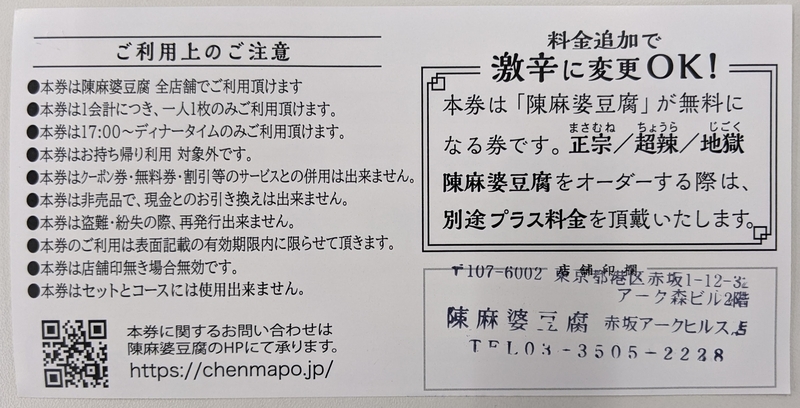 ご利用上のご注意
●本券は陳麻婆豆腐 全店舗でご利用頂けます
●本券は1会計につき、一人1枚のみご利用頂けます。
●本券は17:00〜ディナータイムのみご利用頂けます。
●本券はお持ち帰り利用 対象外です。
●本券はクーポン券・無料券・割引等のサービスとの併用は出来ません。
●本券は非売品で、現金とのお引き換えは出来ません。
●本券は盗難・紛失の際、再発行出来ません。
●本券のご利用は表面記載の有効期限内に限らせて頂きます。
●本券は店舗印無き場合無効です。
●本券はセットとコースには使用出来ません。
本券に関するお問い合わせは
陳麻婆豆腐のHPにて承ります。
https://chenmapo.jp/
料金追加で
激辛に変更OK!
本券は「陳麻婆豆腐」が無料に
まさむね ちょうら じごく
なる券です。正宗/超辣/地獄
陳麻婆豆腐をオーダーする際は、
別途プラス料金を頂戴いたします。
店舗印欄
〒107-6002 東京都港区赤坂1-12-32
アーク森ビル2階
陳麻婆豆腐 赤坂アークヒルズ店
TEL03-3505-2228